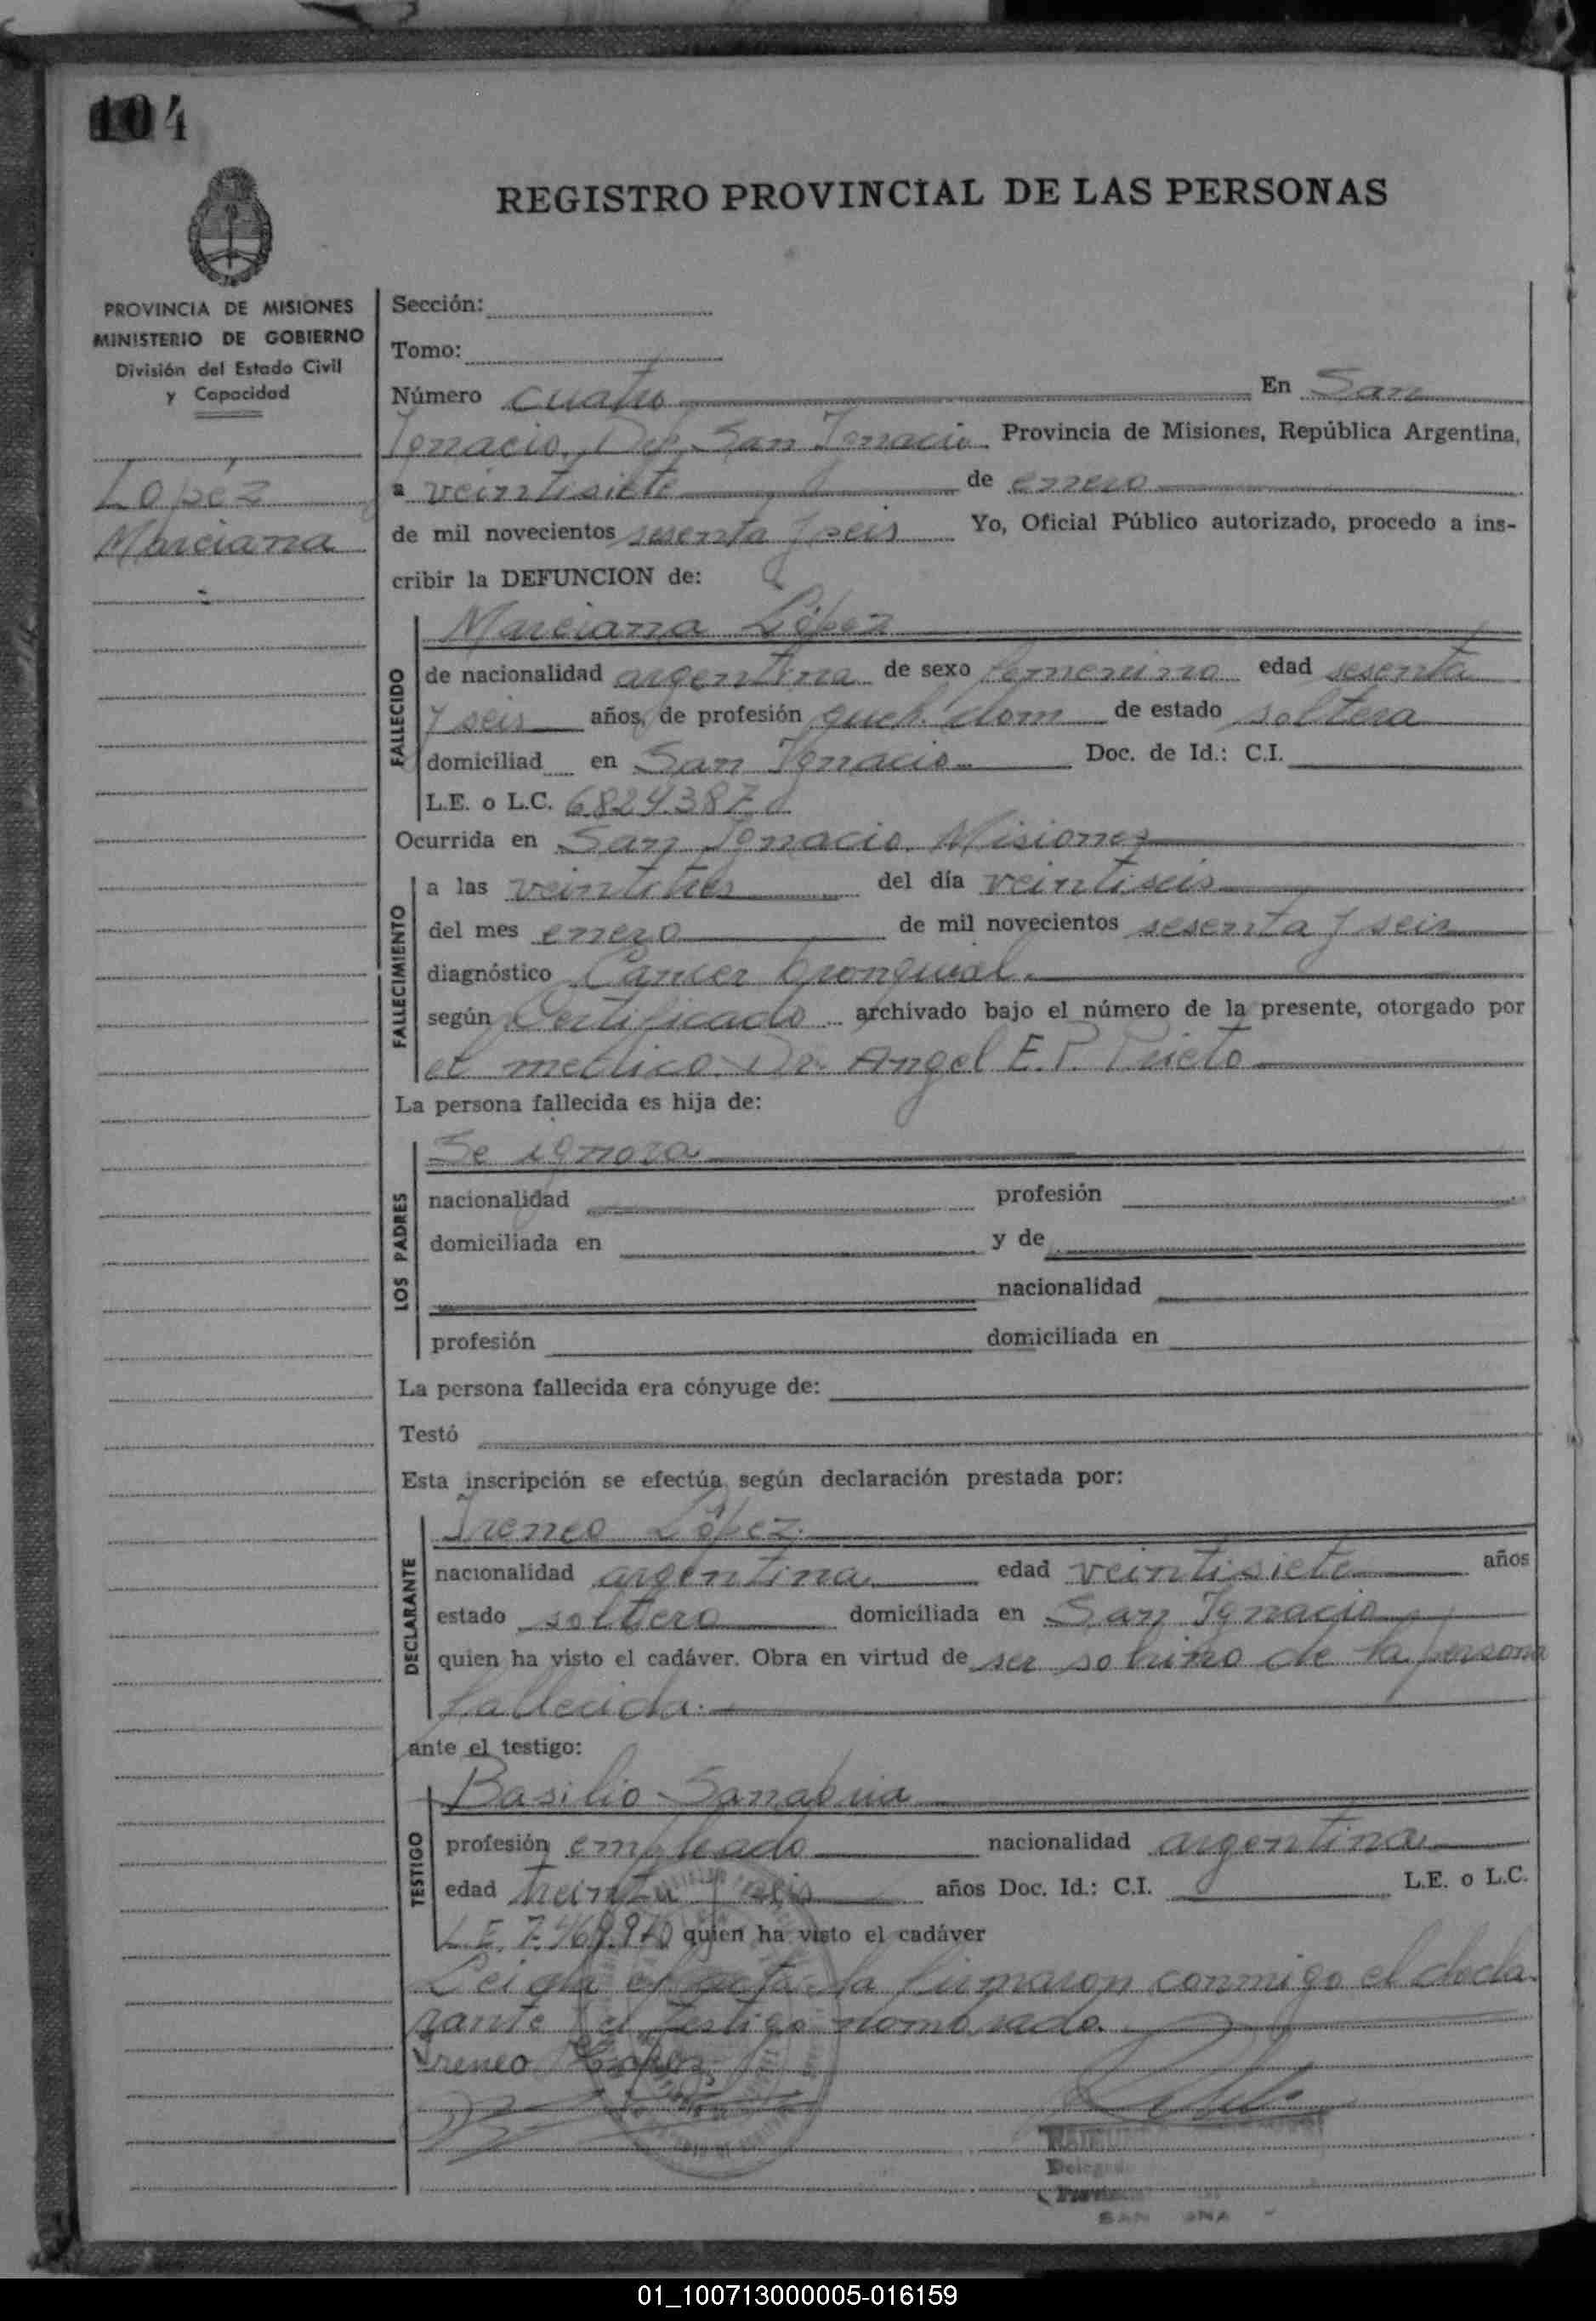 104
REGISTRO PROVINCIAL DE LAS PERSONAS
PROVINCIA DE MISIONES
MINISTERIO DE GOBIERNO
División del Estado Civil
y Capacidad
Lopez
Marciana
Sección:
Tomo:
Número cuatro En San
Ignacio, Dep. San Ignacio Provincia de Misiones, República Argentina,
a veintisiete de enero
de mil novecientos sesenta y seis Yo, Oficial Público autorizado, procedo a ins-
cribir la DEFUNCION de:
Marciana López
FALLECIDO
de nacionalidad argentina de sexo femenino edad sesenta
y seis años, de profesión queh. dom de estado soltera
domiciliad en San Ignacio Doc. de Id.: C.I.
L.E. o L.C. 6824.387
Ocurrida en San Ignacio, Misiones
FALLECIMIENTO
a las veintitres del día veintiseis
del mes enero de mil novecientos sesenta y seis
diagnóstico Cancer bronquial.
según Certificado archivado bajo el número de la presente, otorgado por
el medico Dr. Angel E. P. Prieto
La persona fallecida es hija de:
LOS PADRES
Se ignora
nacionalidad profesión
domiciliada en y de
nacionalidad
profesión domiciliada en
La persona fallecida era cónyuge de:
Testó
Esta inscripción se efectúa según declaración prestada por:
DECLARANTE
Ireneo López
nacionalidad argentina edad veintisiete años
estado soltero domiciliada en San Ignacio
quien ha visto el cadáver. Obra en virtud de ser sobrino de la persona
fallecida.
ante el testigo:
TESTIGO
Basilio Sanabria
profesión empleado nacionalidad argentina
edad treinta y seis años Doc. Id.: C.I. L.E. o L.C.
L.E. quien ha visto el cadáver
Leida el acta la firmaron conmigo el decla
rante y el testigo nombrado.
Ireneo Lopez
Delegado
SAN
01_100713000005-016159